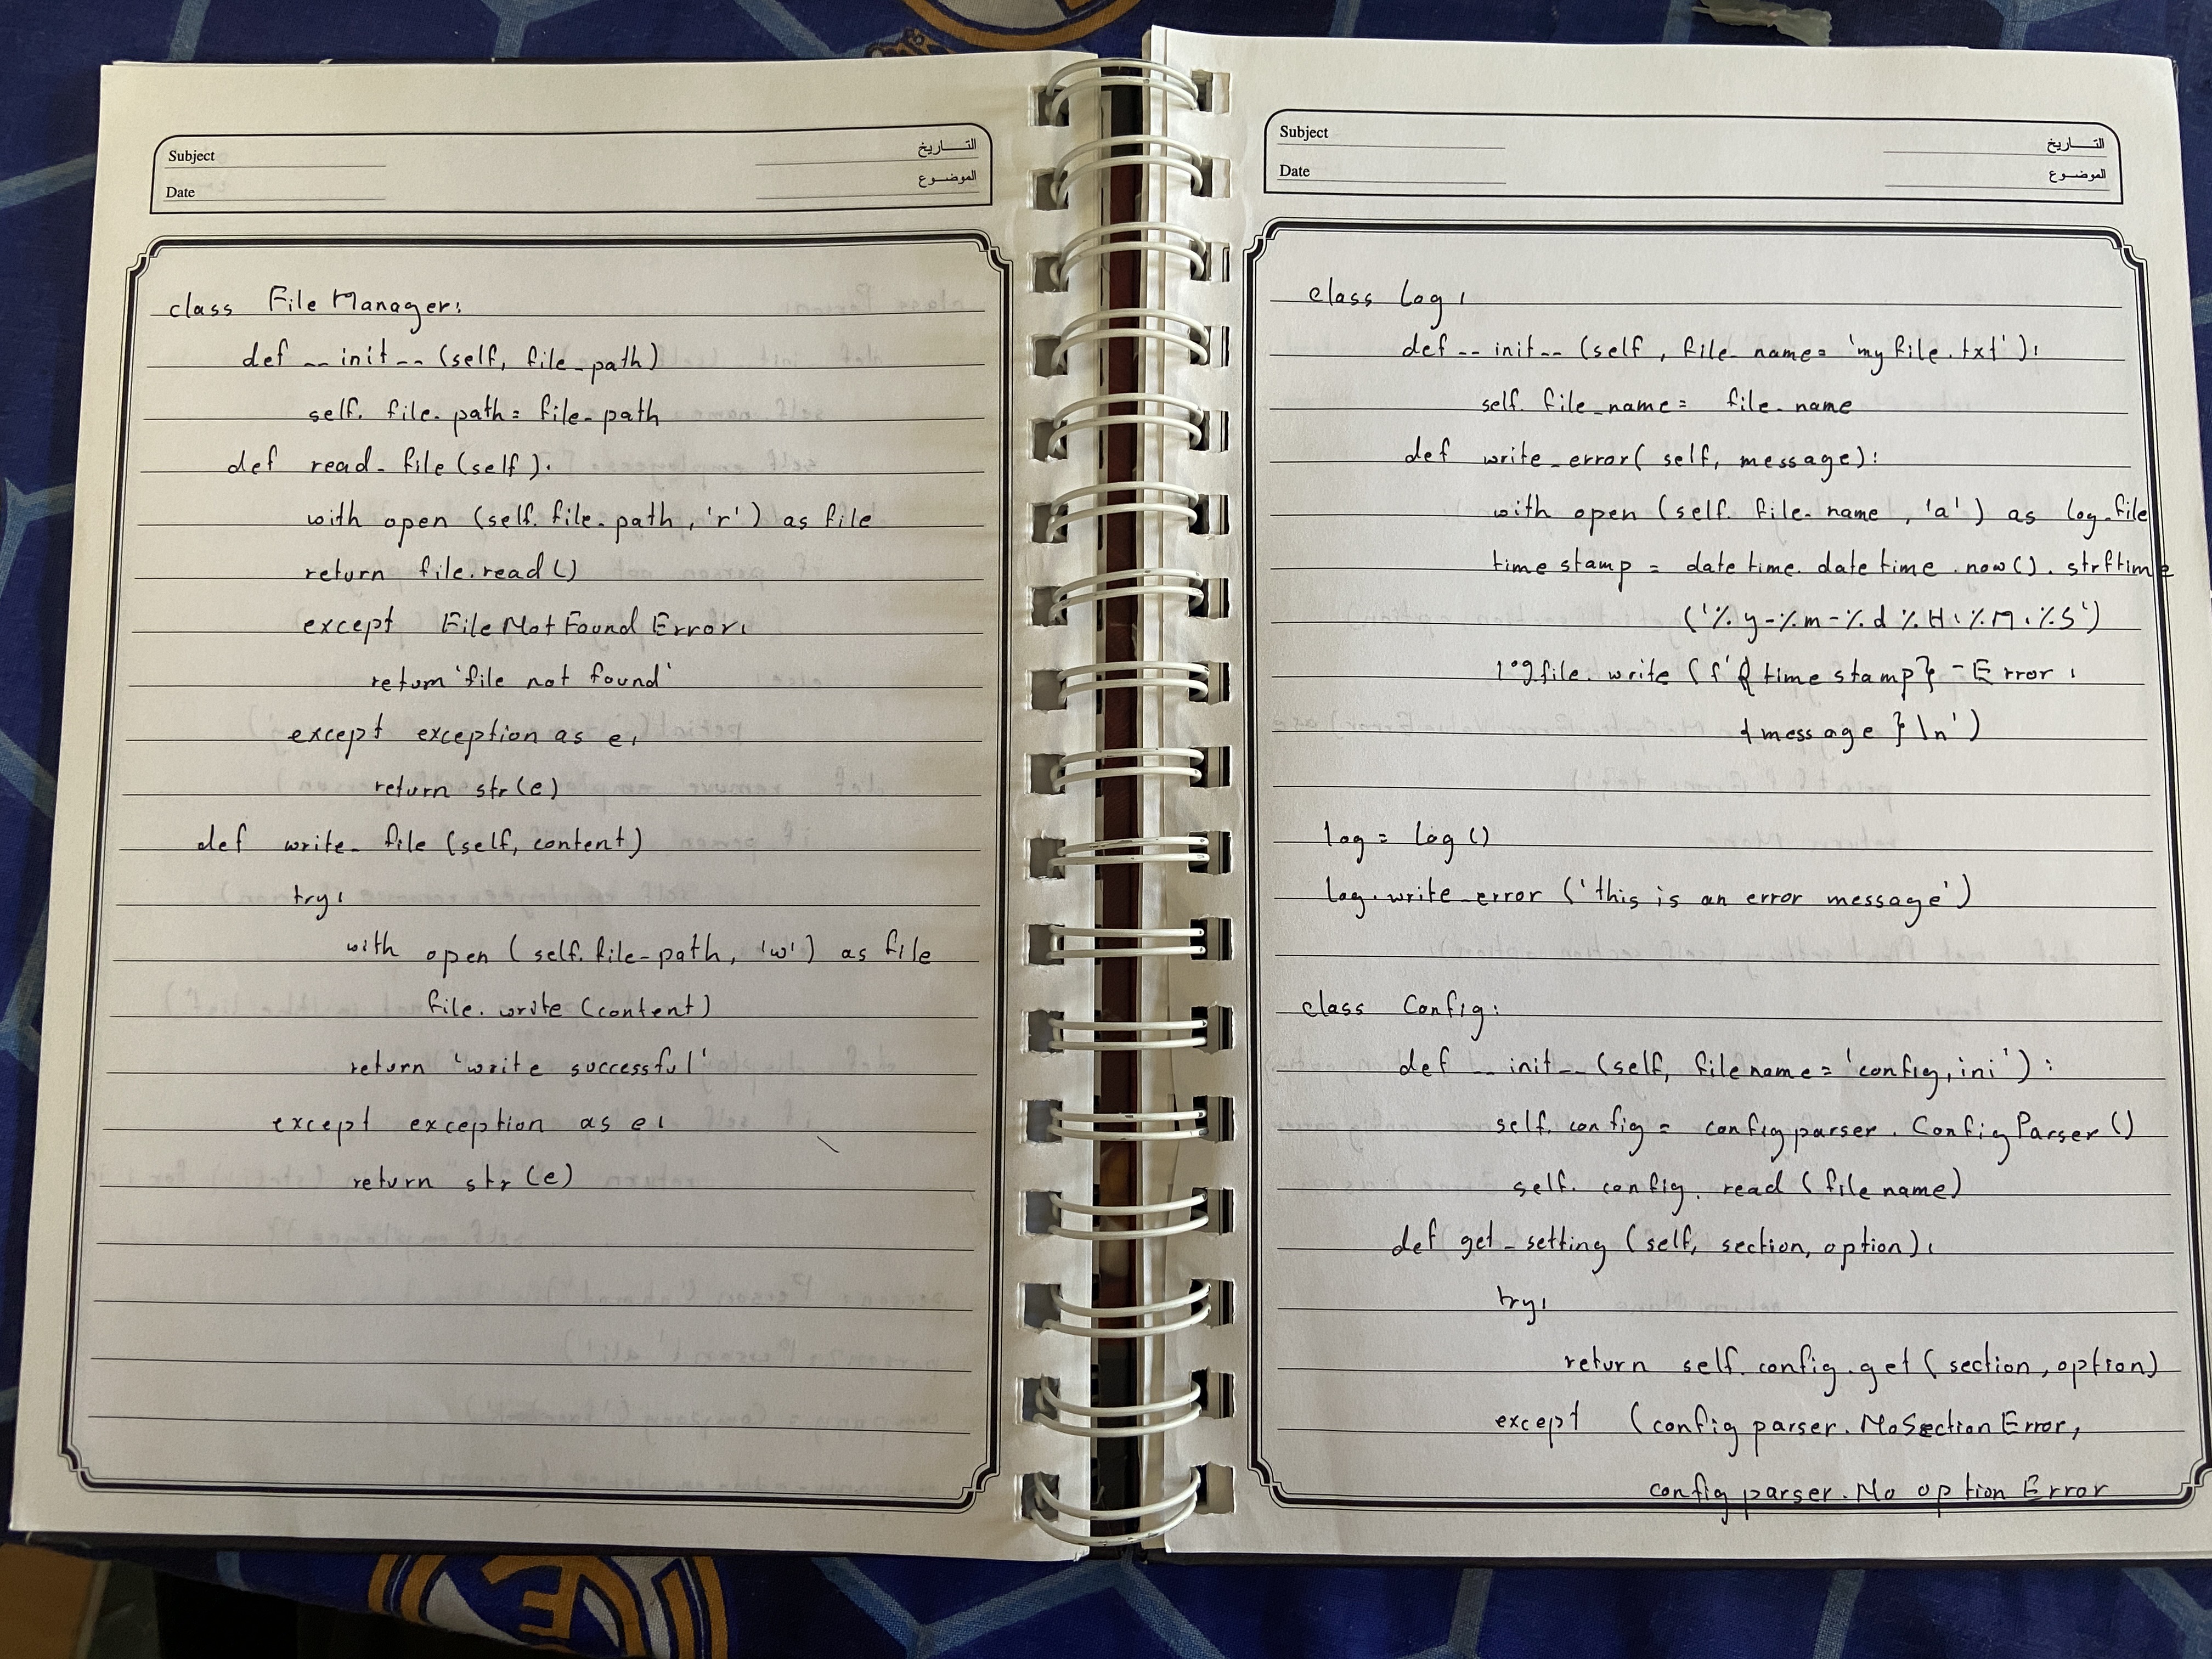 Subject
التـــاريخ
Date
الموضـوع
class File Manager:
def __init__ (self, file_path)
self. file_path = file_path
def read_file (self):
with open (self. file_path, 'r') as file
return file.read()
except FileNotFound Error:
return 'file not found'
except exception as e:
return str(e)
def write_file (self, content)
try:
with open (self.file_path, 'w') as file
file. write (content)
return 'write successful'
except exception as e:
return str (e)
Subject
التـــاريخ
Date
الموضـوع
class Log:
def __init__ (self, file_name= 'myfile.txt'):
self. file_name = file_name
def write_error( self, message):
with open (self file_name , 'a') as log_file
time stamp = date time. date time. now(). strftime
('%y-%m-%d %H:%M:%S')
log file. write (f'{time stamp} - Error:
{message}\n')
log = log ()
log. write_error ('this is an error message')
class Config:
def __init__ (self, file name = 'config.ini'):
self. config = config parser. Config Parser ()
self. config. read (file name)
def get_setting (self, section, option):
try:
return self. config. get (section, option)
except (config parser. NoSection Error,
config parser. No option Error